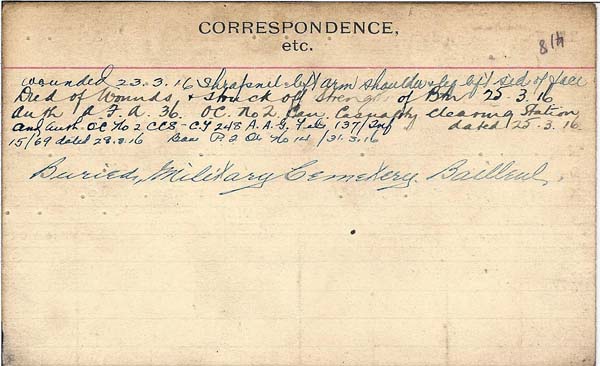 CORRESPONDENCE,
etc.
814
wounded 23.3.16 Shrapnel left arm shoulder & leg left sid of face
Died of Wounds & struck off strength of Bn 25.3.16
Auth A.F.A. 36. O.C. No 2 Can. Casualty Clearing Station
Auth. OC No 2 CCS - C4 248 A.A.G. 137/Inf dated 25.3.16
15/69 dated 28.3.16 Can P.2 O. No 14, /31.3.16
Buried, Military Cemetery. Bailleul.